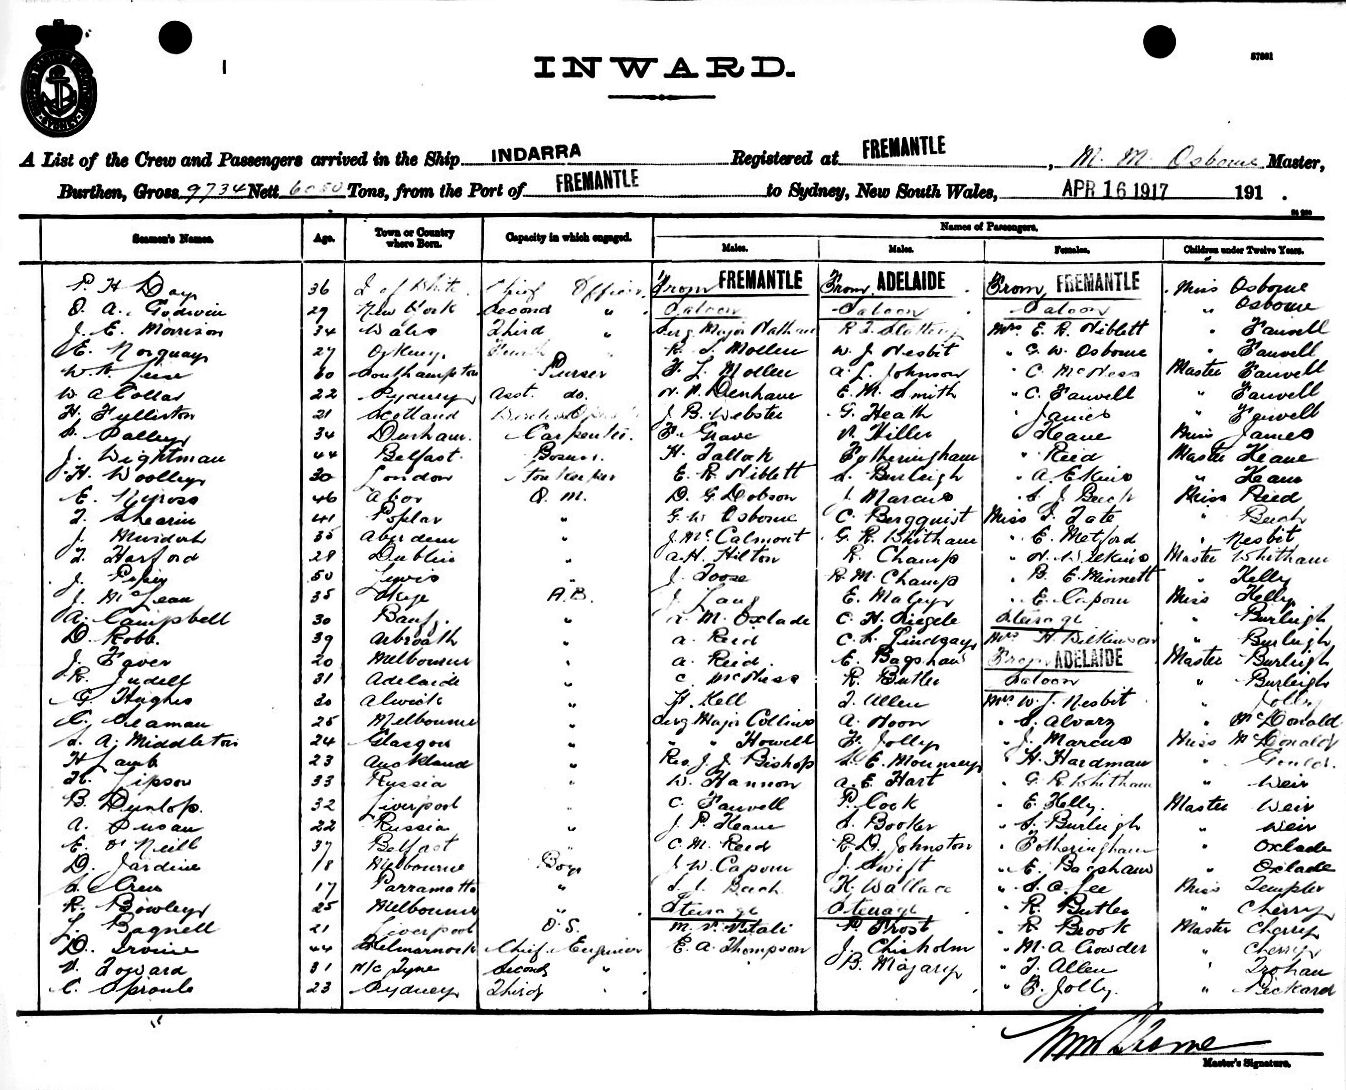 57661
INWARD.
A List of the Crew and Passengers arrived in the Ship INDARRA Registered at FREMANTLE, M. M. Osborne Master,
Burthen, Gross 9734 Nett Tons, from the Port of FREMANTLE to Sydney, New South Wales, APR 16 1917 191 .
Seamen's Names. Age. Town or Country where Born. Capacity in which engaged. Names of Passengers.
Males. Males. Females. Children under Twelve Years.
P. H. Day 36 I of Wht. Chief Officer From FREMANTLE From ADELAIDE From FREMANTLE Miss Osborne
A. Godwin 29 New York Second " Saloon Saloon Saloon " Osborne
J. E. Morrison 34 Wales Third " Serg Major Mrs E. R. Niblett " Fawell
E. Norquay 27 Orkney Fourth " Mollen W. J. Nesbit " G. W. Osborne " Fawell
60 Southampton Purser F. L. Mollen A. L. Johnson " C. McNess Master Fawell
W A Collar 22 Sydney Asst. do. Denham E. W. Smith " C. Fawell " Fawell
H. 21 Scotland J. B. Webster G. Heath " James " Fawell
34 Durham. Carpenter. F. Grave Hiller " Keane Miss James
J. Wightman 44 Belfast. Bosun. H. Tallok Fotheringham " Reid Master Keane
H. Woolley 30 London E. R. Niblett S. Burleigh " A. Elkins " Keane
E. 46 Q. M. D. G. Dobson J. Marcus " S. J. Buch Miss Reed
T. Shearin 41 Poplar " G. W. Osborne C. Bergquist Miss Tate " Buch
J. Murdoch 35 Aberdeen " J. McCalmont G. R. Whitham " E. Metford " Nesbit
T. Harford 29 Dublin " A. H. Hilton R. Champ " Wilkins Master Whitham
J. 50 Lewis " J. Toose R. M. Champ " B. E. Minnett " Kelly
J. McLean 35 A.B. J. Lang E. Maley " E. Capon Miss Kelly
A. Campbell 30 Banf " M. Oxlade C. H. Steerage " Burleigh
D. Robb. 39 Arbroath " A. Reid C. Lindsay Mrs H. Wilkinson " Burleigh
J. 20 Melbourne " A. Reid. E. Bagshaw From ADELAIDE Master Burleigh
R. Judell 31 Adelaide " C. McNess R. Butler Saloon " Burleigh
G. Hughes 30 Alnwick " H. Kell J. Allen Mrs W. J. Nesbit " Jolly
C. Seaman 25 Melbourne " Serg Major Collins A. Noon " S. Alvarz " McDonald
A. Middleton 24 Glasgow " " " Howell F. Jolly " J. Marcus Miss McDonald
H. Lamb 23 Auckland " Rev. J. J. Bishop E. Mounsey " H. Hardman
H. Lipson 33 Russia " W. Hannon A. E. Hart " G. R. Whitham " Weir
B. Dunlop. 32 Liverpool " C. Fawell P. Cook " E. Kelly. Master Weir
A. Susan 22 Russia " J. P. Keane S. Booker " S. Burleigh " Weir
E. O'Neill 37 Belfast " C. M. Reed R. D. Johnston " Fotheringham " Oxlade
D. Jardine 18 Melbourne Boy J. W. Capon J. Swift " E. Bagshaw " Oxlade
S. Crew 17 Parramatta " Buch H. Wallace " S. C. Lee Miss Templer
R. Bowley 25 Melbourne " Steerage Steerage " R. Butler " Cherry
L. Bagnell 21 Liverpool O.S. M. Vitali P. Frost " R. Brook Master Cherry
D. Irvine 44 Kilmarnock Chief Engineer E. A. Thompson J. Chisholm " M. A. Crowder " Cherry
Foward 31 N/c Tyne Second " B. Magary " J. Allen " Trohan
C. Sproule 23 Sydney Third " " F. Jolly. " Pickard
Master's Signature.